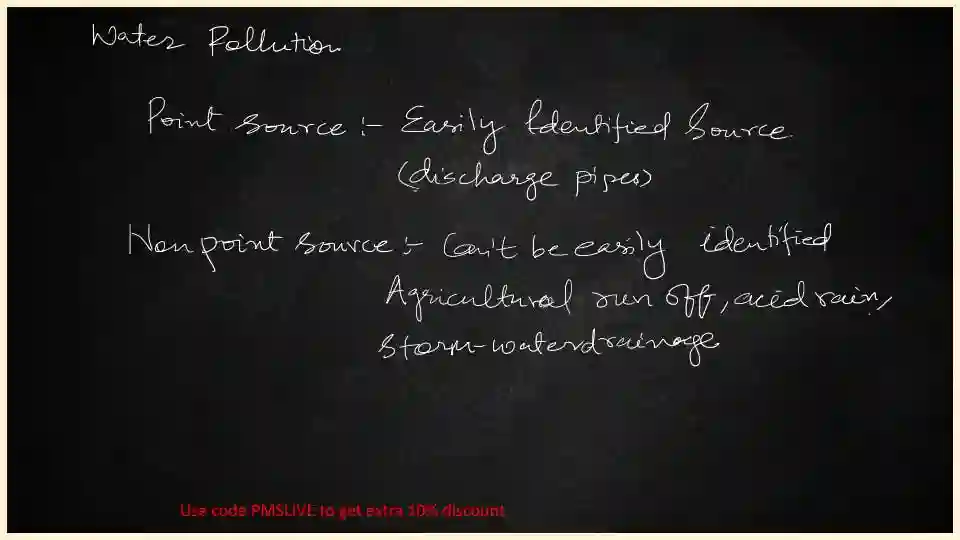 Water Pollution
Point source :- Easily Identified Source.
(discharge pipes)
Non point source :- Can't be easily identified
Agricultural run off, acid rain,
storm-waterdrainage
Use code PMSLIVE to get extra 10% discount